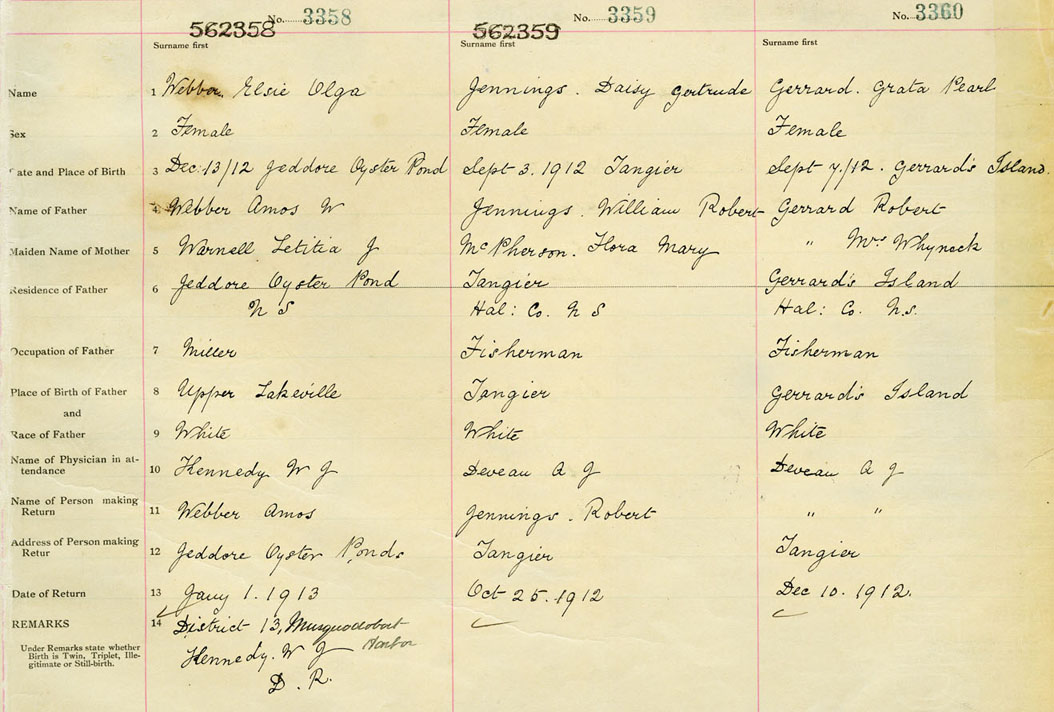 No. 3358 No. 3359 No. 3360
562358 562359
Surname first Surname first Surname first
Name 1 Webber. Elsie Olga Jennings. Daisy Gertrude Gerrard. Grata Pearl
Sex 2 Female Female Female
ate and Place of Birth 3 Dec. 13/12 Jeddore Oyster Pond Sept 3. 1912 Tangier Sept 7/12. Gerrard's Island.
Name of Father 4 Webber Amos W Jennings. William Robert Gerrard Robert
Maiden Name of Mother 5 Warnell Letitia J McPherson. Flora Mary " Mrs Whyneck
Residence of Father 6 Jeddore Oyster Pond Tangier Gerrard's Island
N S Hal: Co. N S Hal: Co. N.S.
Occupation of Father 7 Miller Fisherman Fisherman
Place of Birth of Father 8 Upper Lakeville Tangier Gerrard's Island
and
Race of Father 9 White White White
Name of Physician in at-
tendance 10 Kennedy W J Deveau A J Deveau A J
Name of Person making
Return 11 Webber Amos Jennings. Robert " "
Address of Person making
Retur 12 Jeddore Oyster Ponds Tangier Tangier
Date of Return 13 Jany 1. 1913 Oct 25. 1912 Dec 10. 1912.
REMARKS 14 District 13, Musquodoboit
Harbor
Under Remarks state whether
Birth is Twin, Triplet, Ille-
gitimate or Still-birth.
Kennedy. W J
D. R.